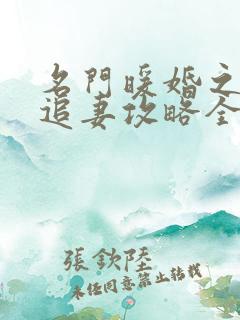 名門暖婚之
追妻攻略全
張欽陸
未経同意禁止轉載